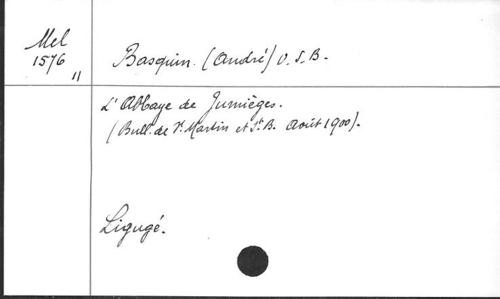 Mel
1576
11
Basquin. (André) O.S.B.
L'Abbaye de Jumièges.
(Bull. de St. Martin et St. B. Août 1900).
Ligugé.